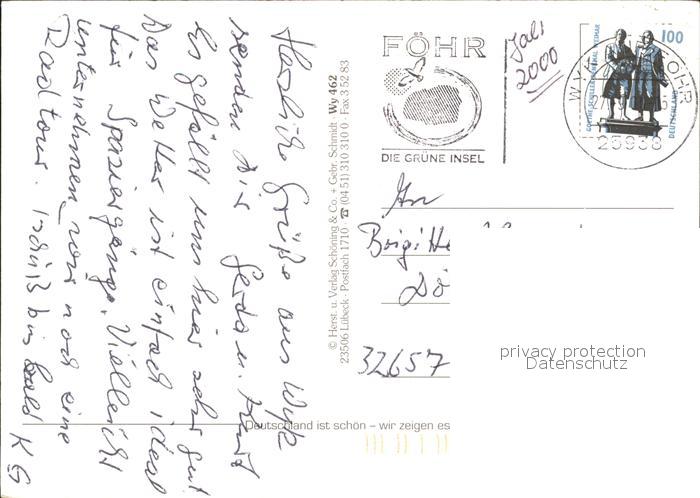 Herzliche Grüße aus Wyk
senden Dir Gerda u. Kurt
Es gefällt uns hier sehr gut
Das Wetter ist einfach ideal
für Spaziergänge. Vielleicht
unternehmen wir noch eine
Radtour. Tschüß bis bald K G
© Herst. u. Verlag Schöning & Co. + Gebr. Schmidt · Wy 462
23506 Lübeck · Postfach 1710 · ☎ (04 51) 310 310 0 · Fax 3 52 83
FÖHR
DIE GRÜNE INSEL
Juli
2000
100
GOETHE-SCHILLER-DENKMAL WEIMAR
DEUTSCHLAND
WYK FÖHR
25938
An
Brigitte
Dö
32657
privacy protection
Datenschutz
Deutschland ist schön – wir zeigen es